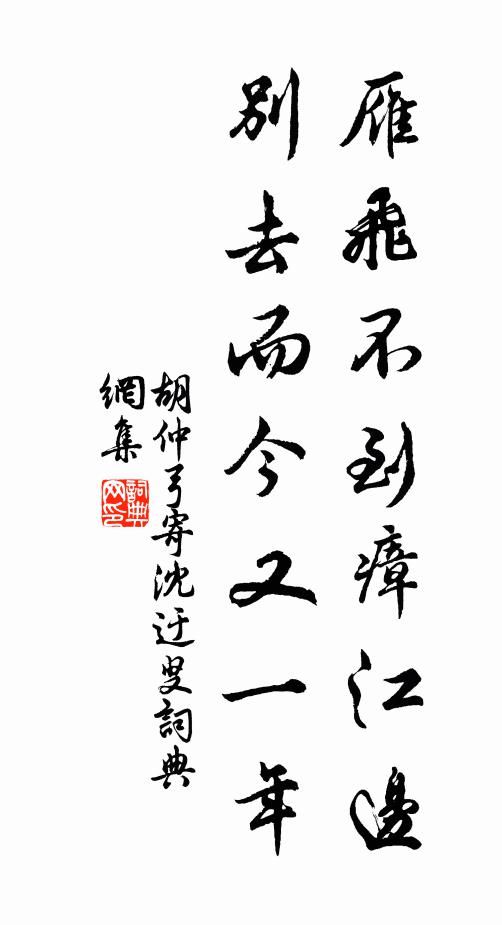 雁飛不到瘴江邊
別去而今又一年
胡仲弓寄沈迂叟詞典
網集
詞典
网印